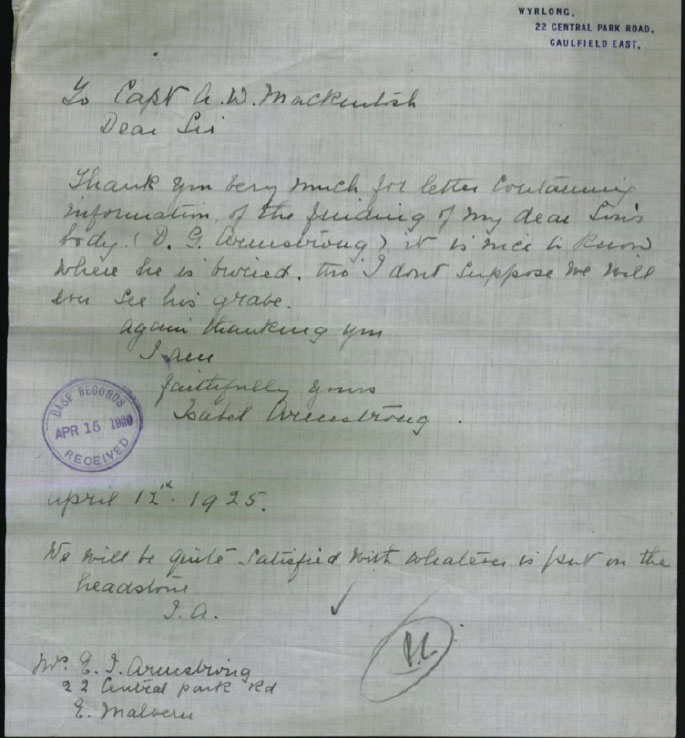 WYRLONG,
22 CENTRAL PARK ROAD,
CAULFIELD EAST,
To Capt A. W. Mackintosh
Dear Sir
Thank you very much for letter containing
information, of the finding of my dear Son's
body. (D. G. Armstrong), it is nice to know
where he is buried. tho' I dont suppose we will
ever see his grave.
again thanking you
I am
faithfully yours
Isabel Armstrong.
BASE RECORDS
APR 15
RECEIVED
april 12th. 1925.
We will be quite satisfied with whatever is put on the
headstone
I. A.
Mrs E. I. Armstrong
22 Central park Rd
E. Malvern